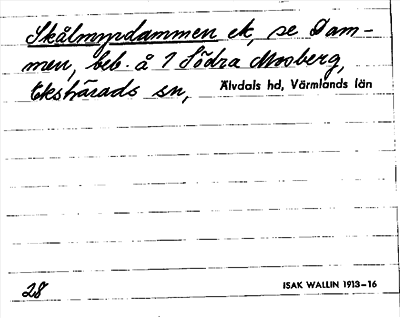 Skålmyrdammen ek, se Dam-
men, beb. å 7 Södra Mosberg,
Ekshärads sn, Älvdals hd, Värmlands län
28 ISAK WALLIN 1913-16